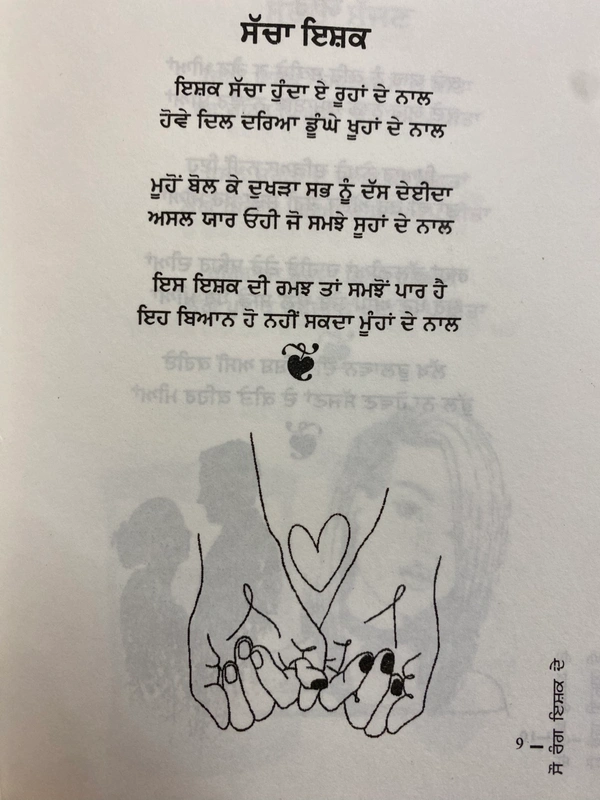 ਸੱਚਾ ਇਸ਼ਕ
ਇਸ਼ਕ ਸੱਚਾ ਹੁੰਦਾ ਏ ਰੂਹਾਂ ਦੇ ਨਾਲ
ਹੋਵੇ ਦਿਲ ਦਰਿਆ ਡੂੰਘੇ ਖੂਹਾਂ ਦੇ ਨਾਲ
ਮੂਹੋਂ ਬੋਲ ਕੇ ਦੁਖੜਾ ਸਭ ਨੂੰ ਦੱਸ ਦੇਈਦਾ
ਅਸਲ ਯਾਰ ਓਹੀ ਜੋ ਸਮਝੇ ਸੂਹਾਂ ਦੇ ਨਾਲ
ਇਸ ਇਸ਼ਕ ਦੀ ਰਮਝ ਤਾਂ ਸਮਝੋਂ ਪਾਰ ਹੈ
ਇਹ ਬਿਆਨ ਹੋ ਨਹੀਂ ਸਕਦਾ ਮੂੰਹਾਂ ਦੇ ਨਾਲ
9
ਸੌ ਰੰਗ ਇਸ਼ਕ ਦੇ